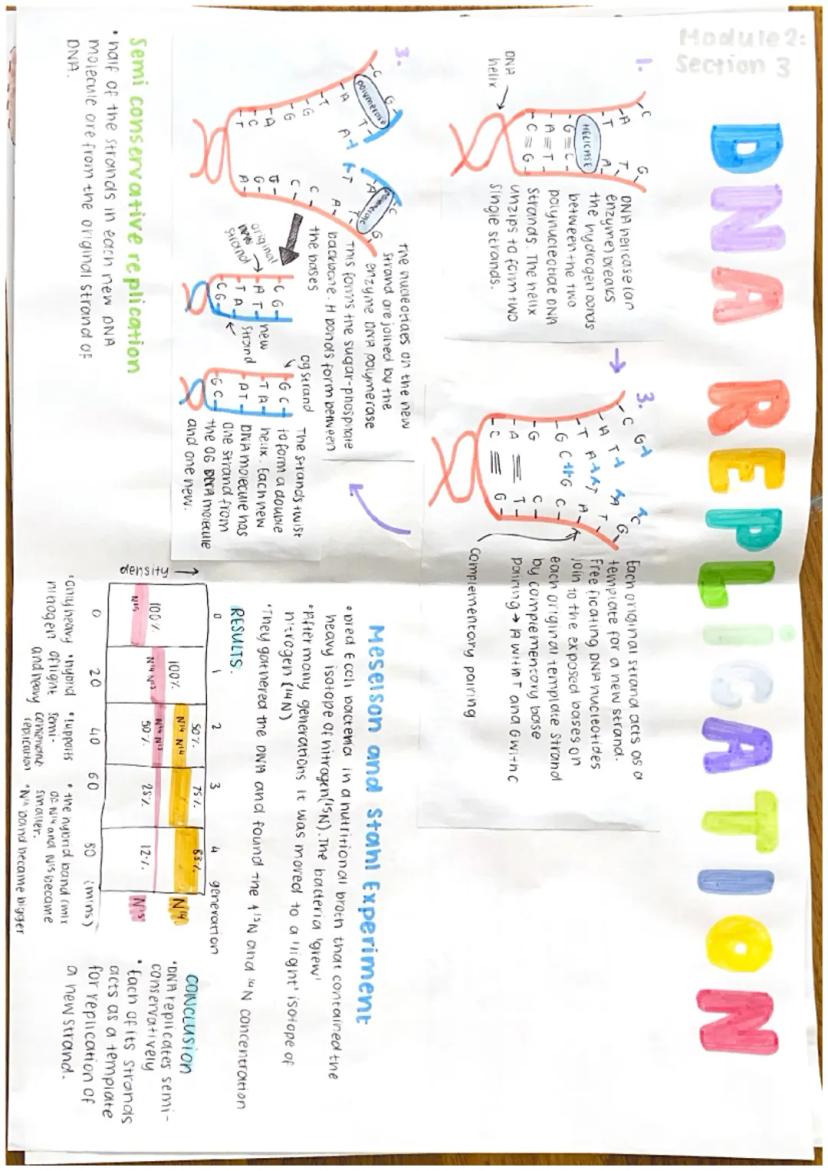 Module 2:
Section 3
DNA REPLICATION
1.
DNA
helix
HELICASE
DNA helicase (an
enzyme) breaks
the hydrogen bonds
between the two
polynucleotide DNA
strands. The helix
unzips to form two
single strands.
3.
Each original strand acts as a
template for a new strand.
Free floating DNA nucleotides
join to the exposed bases on
each original template strand
by complementary base
pairing → A with T and G with C
complementary pairing
3.
polymerase
polymerase
The nucleotides on the new
strand are joined by the
enzyme DNA polymerase
This forms the sugar-phosphate
backbone. H bonds form between
the bases
original
strand
new
strand
og strand
The strands twist
to form a double
helix. Each new
DNA molecule has
one strand from
the OG DNA molecule
and one new.
Semi conservative replication
• half of the strands in each new DNA
molecule are from the original strand of
DNA.
Meselson and Stahl Experiment
• bred E coli bacteria in a nutritional broth that contained the
heavy isotope of nitrogen (¹⁵N). The bacteria 'grew'
• After many generations it was moved to a 'light' isotope of
nitrogen (¹⁴N)
• They gathered the DNA and found the ¹⁵N and ¹⁴N concentration
RESULTS:
0 1 2 3 4 generation
density →
100% 100% 50% 75% 83%
N¹⁵ N¹⁴ N¹⁵ N¹⁴ N¹⁴ N¹⁴
N¹⁴ N¹⁵ 50% 25% 12% N¹⁵
0 20 40 60 80 (mins)
• only heavy
nitrogen
• hybrid
of light
and heavy
• supports
semi-
conservative
replication
• the hybrid band (mix
of N¹⁴ and N¹⁵) became
smaller.
• N¹⁴ band became bigger
CONCLUSION
• DNA replicates semi-
conservatively
• Each of its strands
acts as a template
for replication of
a new strand.